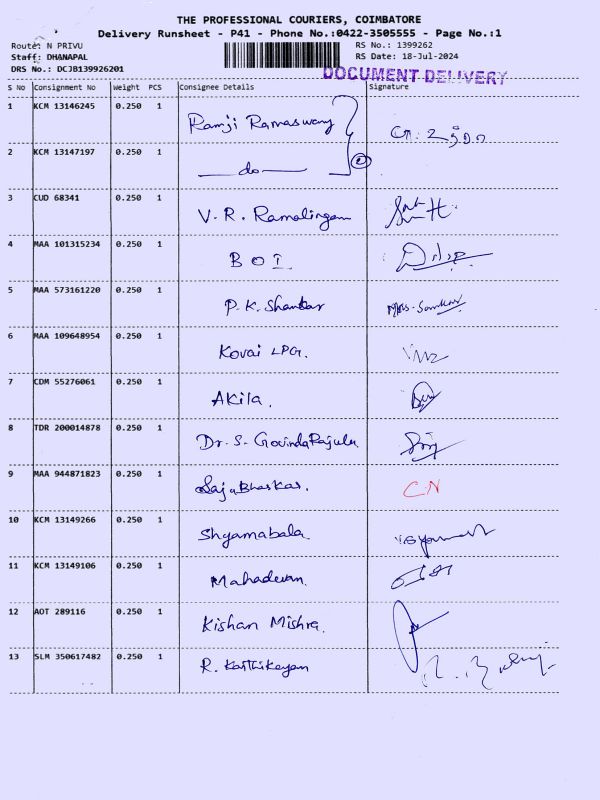 THE PROFESSIONAL COURIERS, COIMBATORE
Delivery Runsheet - P41 - Phone No.:0422-3505555 - Page No.:1
Route: N PRIVU
RS No.: 1399262
Staff: DHANAPAL
RS Date: 18-Jul-2024
DRS No.: DCJB139926201
DOCUMENT DELIVERY
S No Consignment No Weight PCS Consignee Details Signature
1 KCM 13146245 0.250 1 Ramji Ramaswamy
2 KCM 13147197 0.250 1 do
3 CUD 68341 0.250 1 V. R. Ramalingam
4 MAA 101315234 0.250 1 B O I
5 MAA 573161220 0.250 1 P. K. Shankar
6 MAA 109648954 0.250 1 Kovai LPG.
7 CDM 55276061 0.250 1 Akila.
8 TDR 200014878 0.250 1 Dr. S. GovindaRajulu
9 MAA 944871823 0.250 1 Saju Bhaskar. CN
10 KCM 13149266 0.250 1 Shyamabala
11 KCM 13149106 0.250 1 Mahadevan.
12 AOT 289116 0.250 1 Kishan Mishra.
13 SLM 350617482 0.250 1 R. Karthikeyan